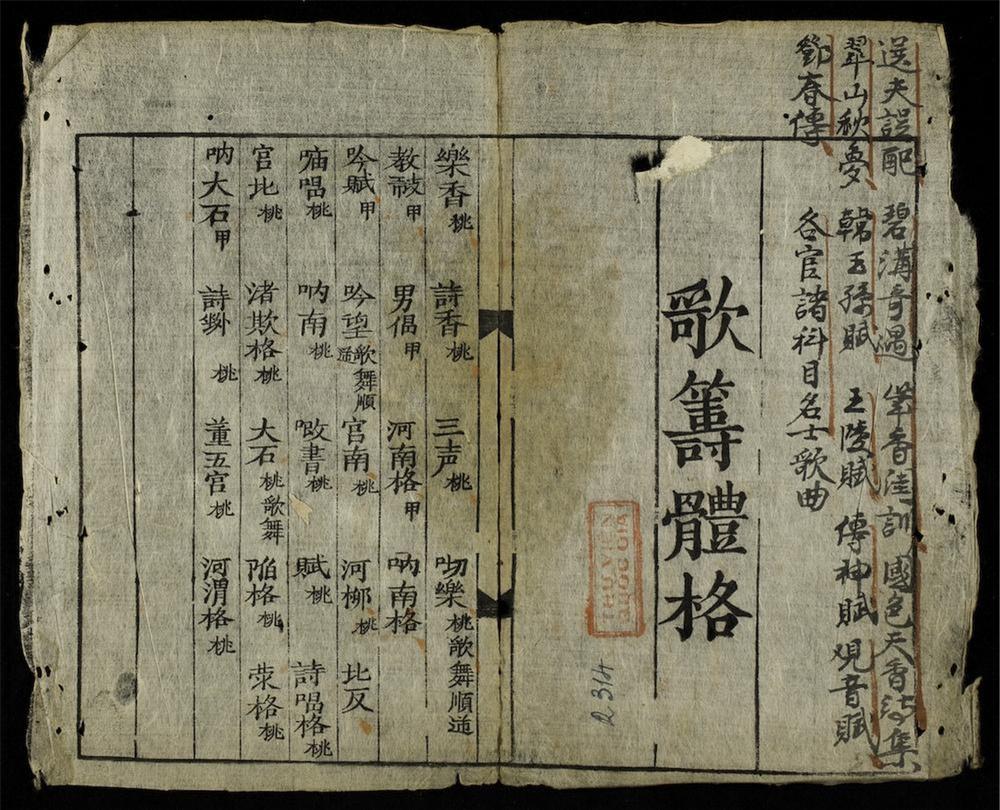 送夫誤配 碧溝奇遇 掌香注訓 國色天香詩集
翠山秋夢 韓王孫賦 王陵賦 傳神賦 观音賦
鄧春傳 各官諸科目名士歌曲
歌籌體格
THƯ VIỆN
QUỐC GIA
R 314
樂香 桃 詩香 桃 三声 桃 吻樂 桃歌舞順逓
教鼓 甲 男倡 甲 河南格 甲 吶南格
吟賦 甲 吟望 歌舞順逓 官南 桃 河柳 桃 北反
唱 桃 吶南 桃 書 桃 賦 桃 詩唱格 桃
宫北 桃 渚欺格 桃 大石 桃歌舞 陷格 桃 滎格 桃
吶大石 甲 詩 桃 董五官 桃 河渭格 桃